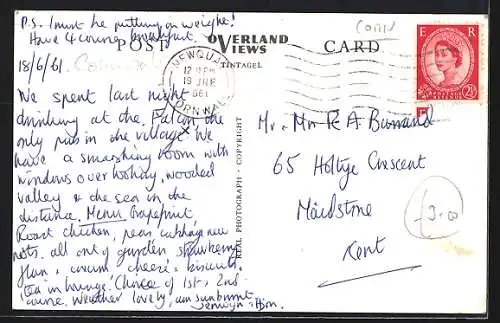 P.S. I must be putting on weight!
Have 4 course breakfast.
POST OVERLAND VIEWS CARD
TINTAGEL
CORN
18/6/61.
NEWQUAY
12 PM
19 JNE
1961
CORNWALL
E R
2½D
We spent last night
drinking at the Falcon the
only pub in the village. We
have a smashing room with
windows overlooking wooded
valley & the sea in the
distance. Menu Grapefruit,
Roast chicken, peas cabbage new
pots. all out of garden strawberry
flan & cream cheese & biscuits.
Tea in lounge! Choice of 1st & 2nd
course. Weather lovely, am sunburnt.
REAL PHOTOGRAPH - COPYRIGHT
Mr. & Mrs R A
65 Holtye Crescent
Maidstone
Kent
3-00